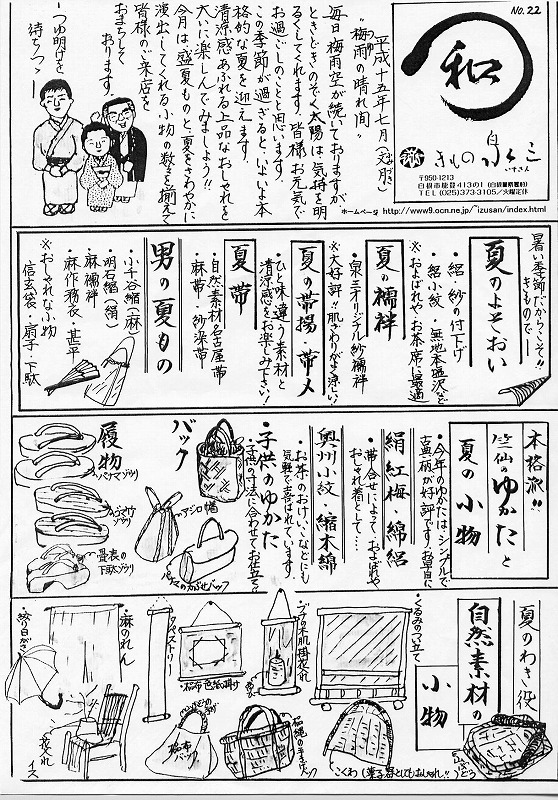 NO.22
和
きもの泉三
いずさん
〒950-1213
白根市能登413の1(白根郵便局前)
TEL (025)373-3105/火曜定休
ホームページ http://www9.ocn.ne.jp/~izusan/index.html
平成十五年七月(文月)
"梅雨の晴れ間"
毎日梅雨空が続いておりますが
ときどきのぞく太陽は、気持を明
るくしてくれます。皆様お元気で
お過ごしのことと思います。
この季節が過ぎると、いよいよ本
格的な夏を迎えます。
清涼感あふれる上品なおしゃれを
大いに楽しんでみましょう!!
今月は、盛夏ものと、夏をさわやかに
演出してくれる小物の数々を揃えて
皆様のご来店を
おまちして
おります。
―つゆ明けを
待ちつつ―
暑い季節だからこそ!!
きもので―
夏のよそおい
・絽・紗の付下げ
・絽小紋・無地本塩沢など
※およばれや、お茶席に最適
夏の襦袢
・泉三オリジナル紗襦袢
※大好評!!肌ざわりがよく涼しい!
夏の帯揚・帯〆
・ひと味違う素材と
清涼感をお楽しみ下さい!!
夏帯
・自然素材名古屋帯
・麻帯・紗染帯
男の夏もの
・小千谷縮(麻)
・明石縮(絹)
・麻襦袢
・麻作務衣・甚平
※おしゃれな小物
信玄袋・扇子・下駄
本格派!!
竺仙のゆかたと
夏の小物
・今年のゆかたは、シンプルで
古典柄が好評です!お早目に
絹紅梅・綿絽
・帯合せによって、およばれや
おしゃれ着として…
奥州小紋・縮木綿
・お茶のおけいこなどにも
気軽で喜ばれています。
・子供のゆかた
子供の寸法に合わせてお仕立て
バック
・アジロ幅
履物
・パナマゾウリ
・畳表の
下駄ゾウリ
夏のわき役
自然素材の
小物
・くるみのつい立て
・ブナの木肌掛花入れ
・裂布色紙掛け
・タペストリー
・麻のれん
・絞り日がさ
・花入れ
イス
裂布
バック
・こくわ(菓子器としてもおしゃれ!!)